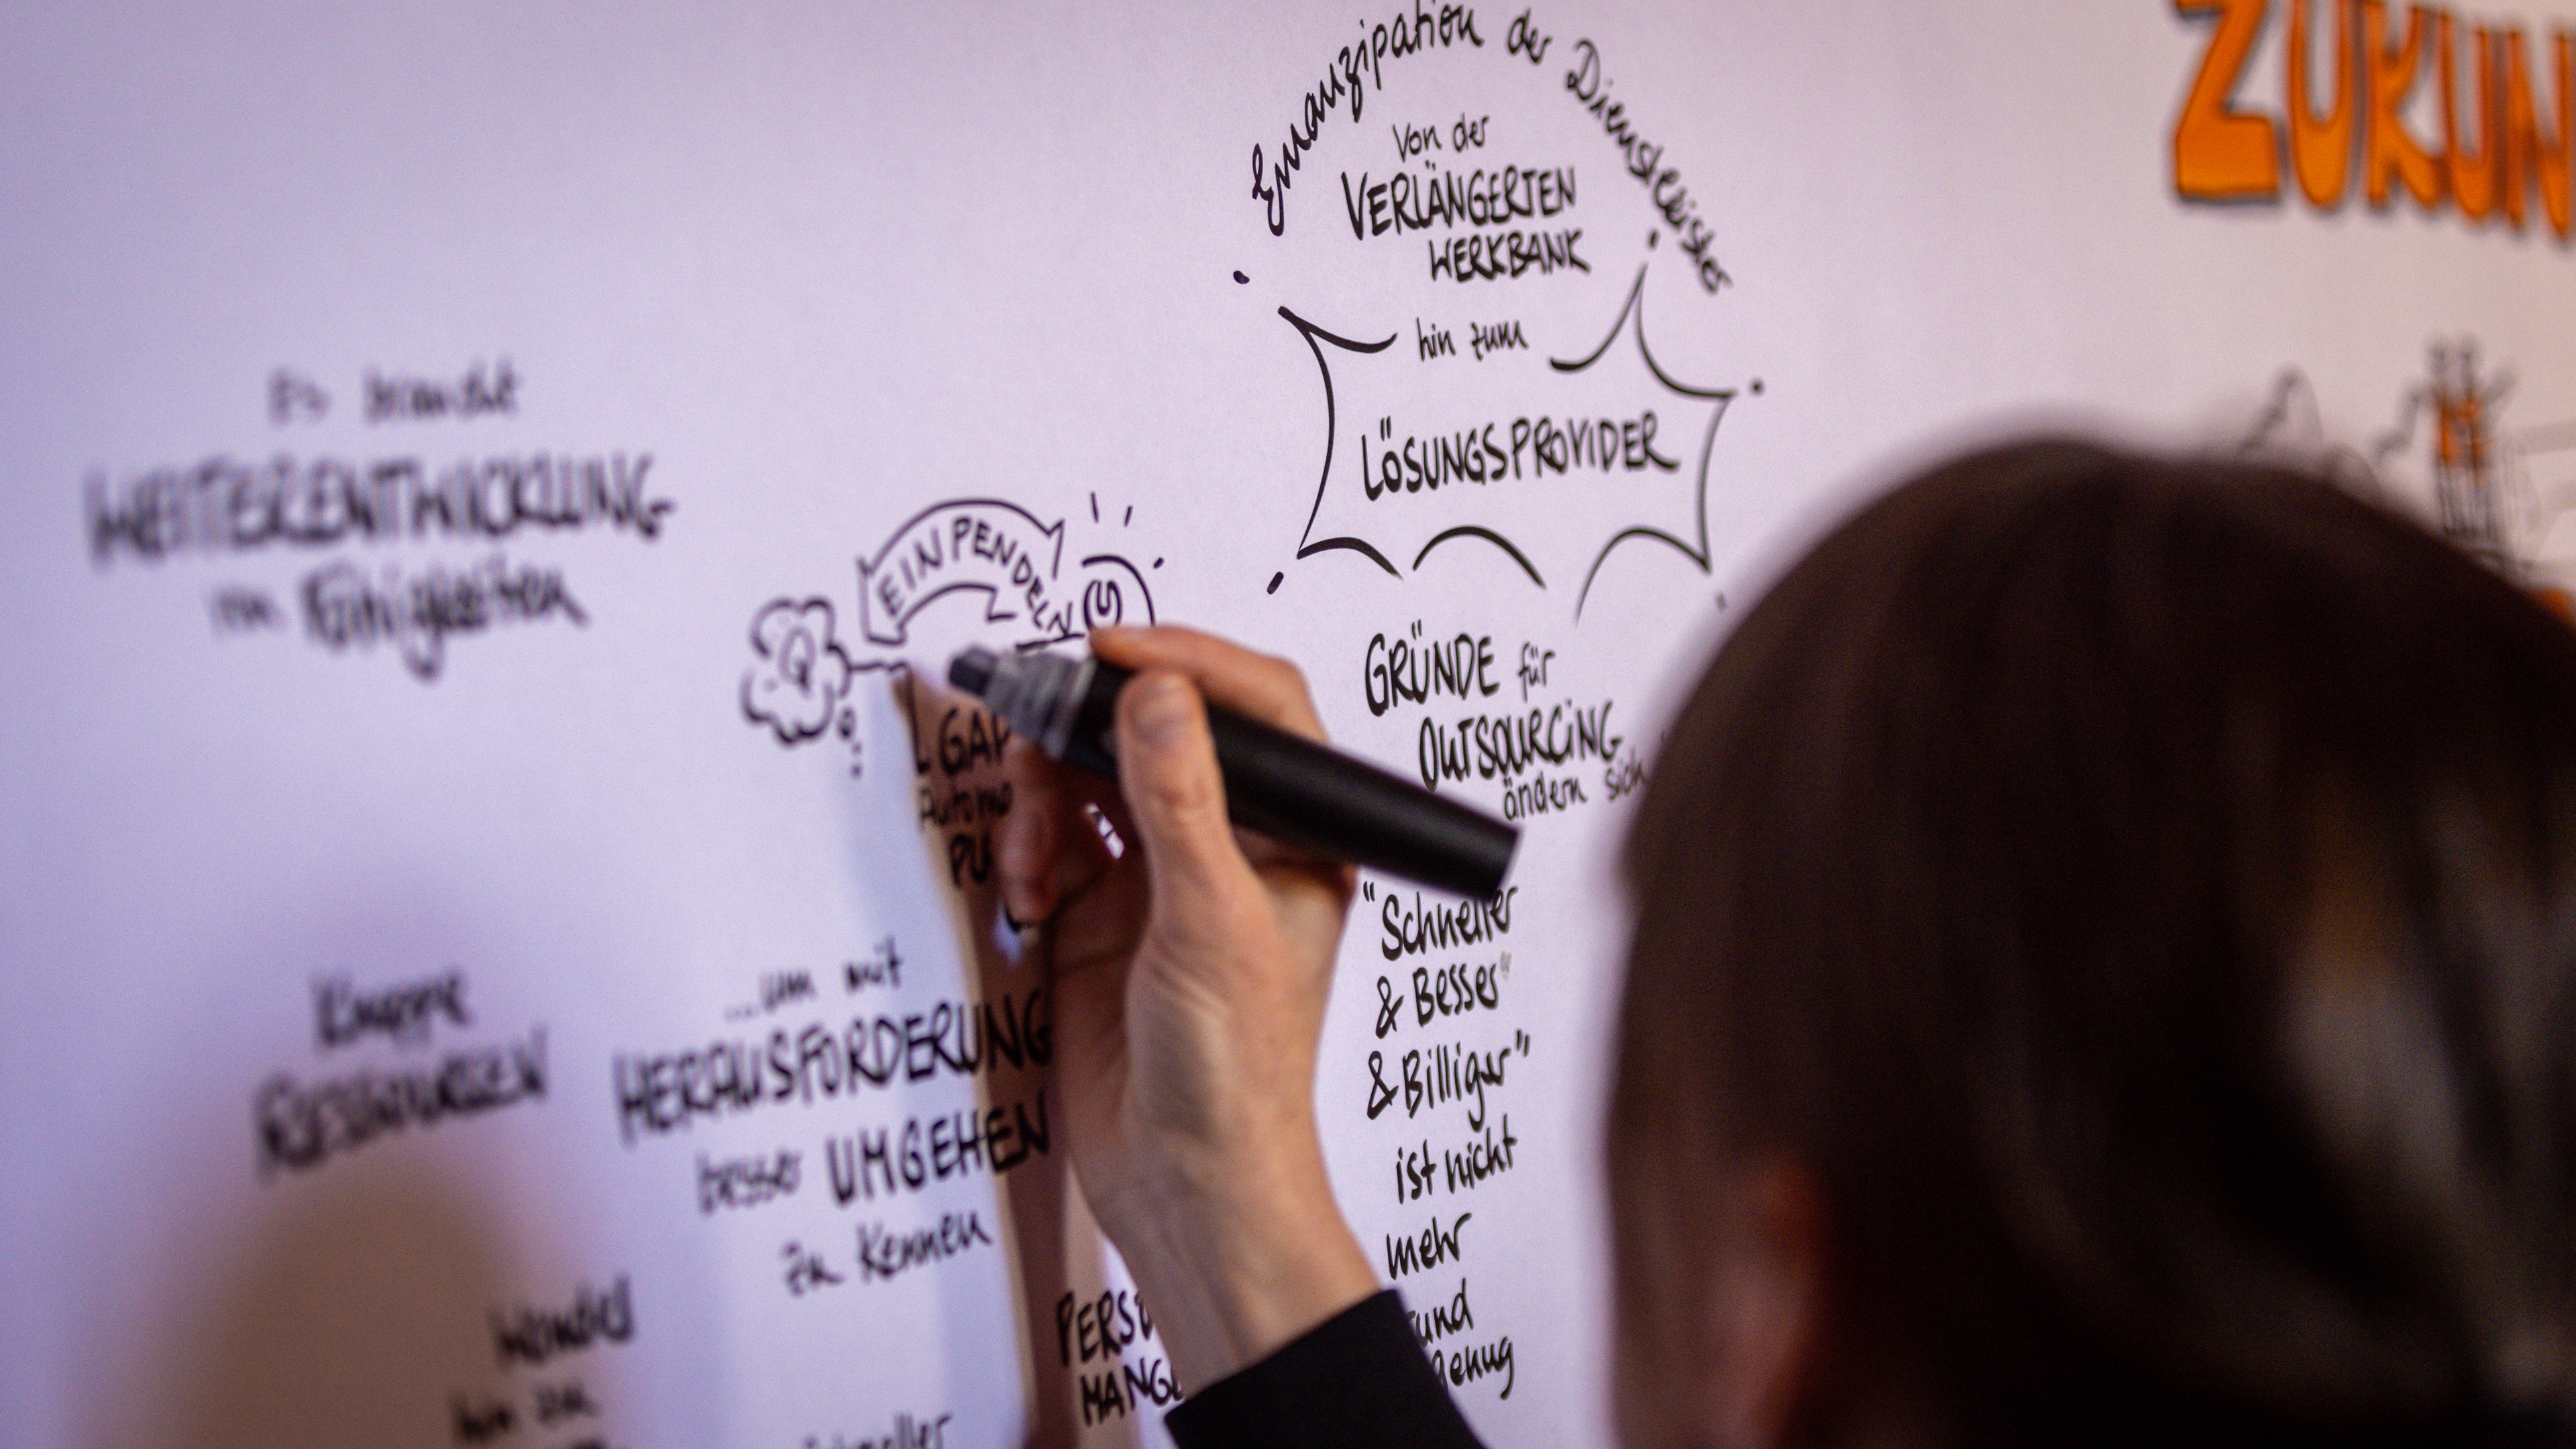 Emanzipation der Dienstleister
Von der
VERLÄNGERTEN
WERKBANK
hin zum
LÖSUNGSPROVIDER
GRÜNDE für
OUTSOURCING
ändern sich
"Schneller
& Besser"
& Billiger"
ist nicht
mehr
und
genug
ZUKUN
Es braucht
WEITERENTWICKLUNG
von Fähigkeiten
EINPENDELN
L GAP
Automo
PU
Knappe
RESSOURCEN
...um mit
HERAUSFORDERUNG
besser UMGEHEN
zu können
Wandel
hin zu
PERSO
MANGE